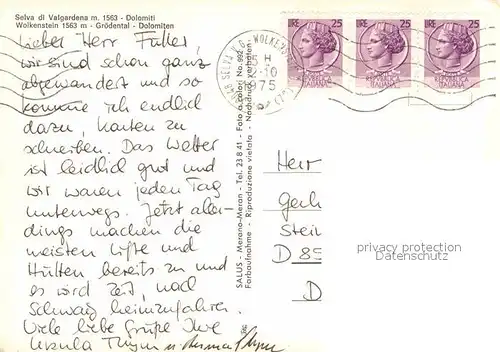 Selva di Valgardena m. 1563 - Dolomiti
Wolkenstein 1563 m - Grödental - Dolomiten
Lieber Herr
wir sind schon ganz
abgewandert und so
komme ich endlich
dazu, Karten zu
schreiben. Das Wetter
ist leidlich gut und
wir waren jeden Tag
unterwegs. Jetzt aller-
dings machen die
meisten Lifte und
Hütten bereits zu und
es wird Zeit, nach
heimzufahren.
Viele liebe Grüße Ihre
Ursula
SALUS - Merano-Meran - Tel. 23 8 41 - Foto a color No. 892
Farbaufnahme - Riproduzione vietata - Nachdruck verboten
SELVA V.G. - WOLKENS
1975
LIRE 25
REPUBBLICA ITALIANA
LIRE 25
REPUBBLICA ITALIANA
LIRE 25
REPUBBLICA ITALIANA
Herr
Stei
D 85
D
privacy protection
Datenschutz